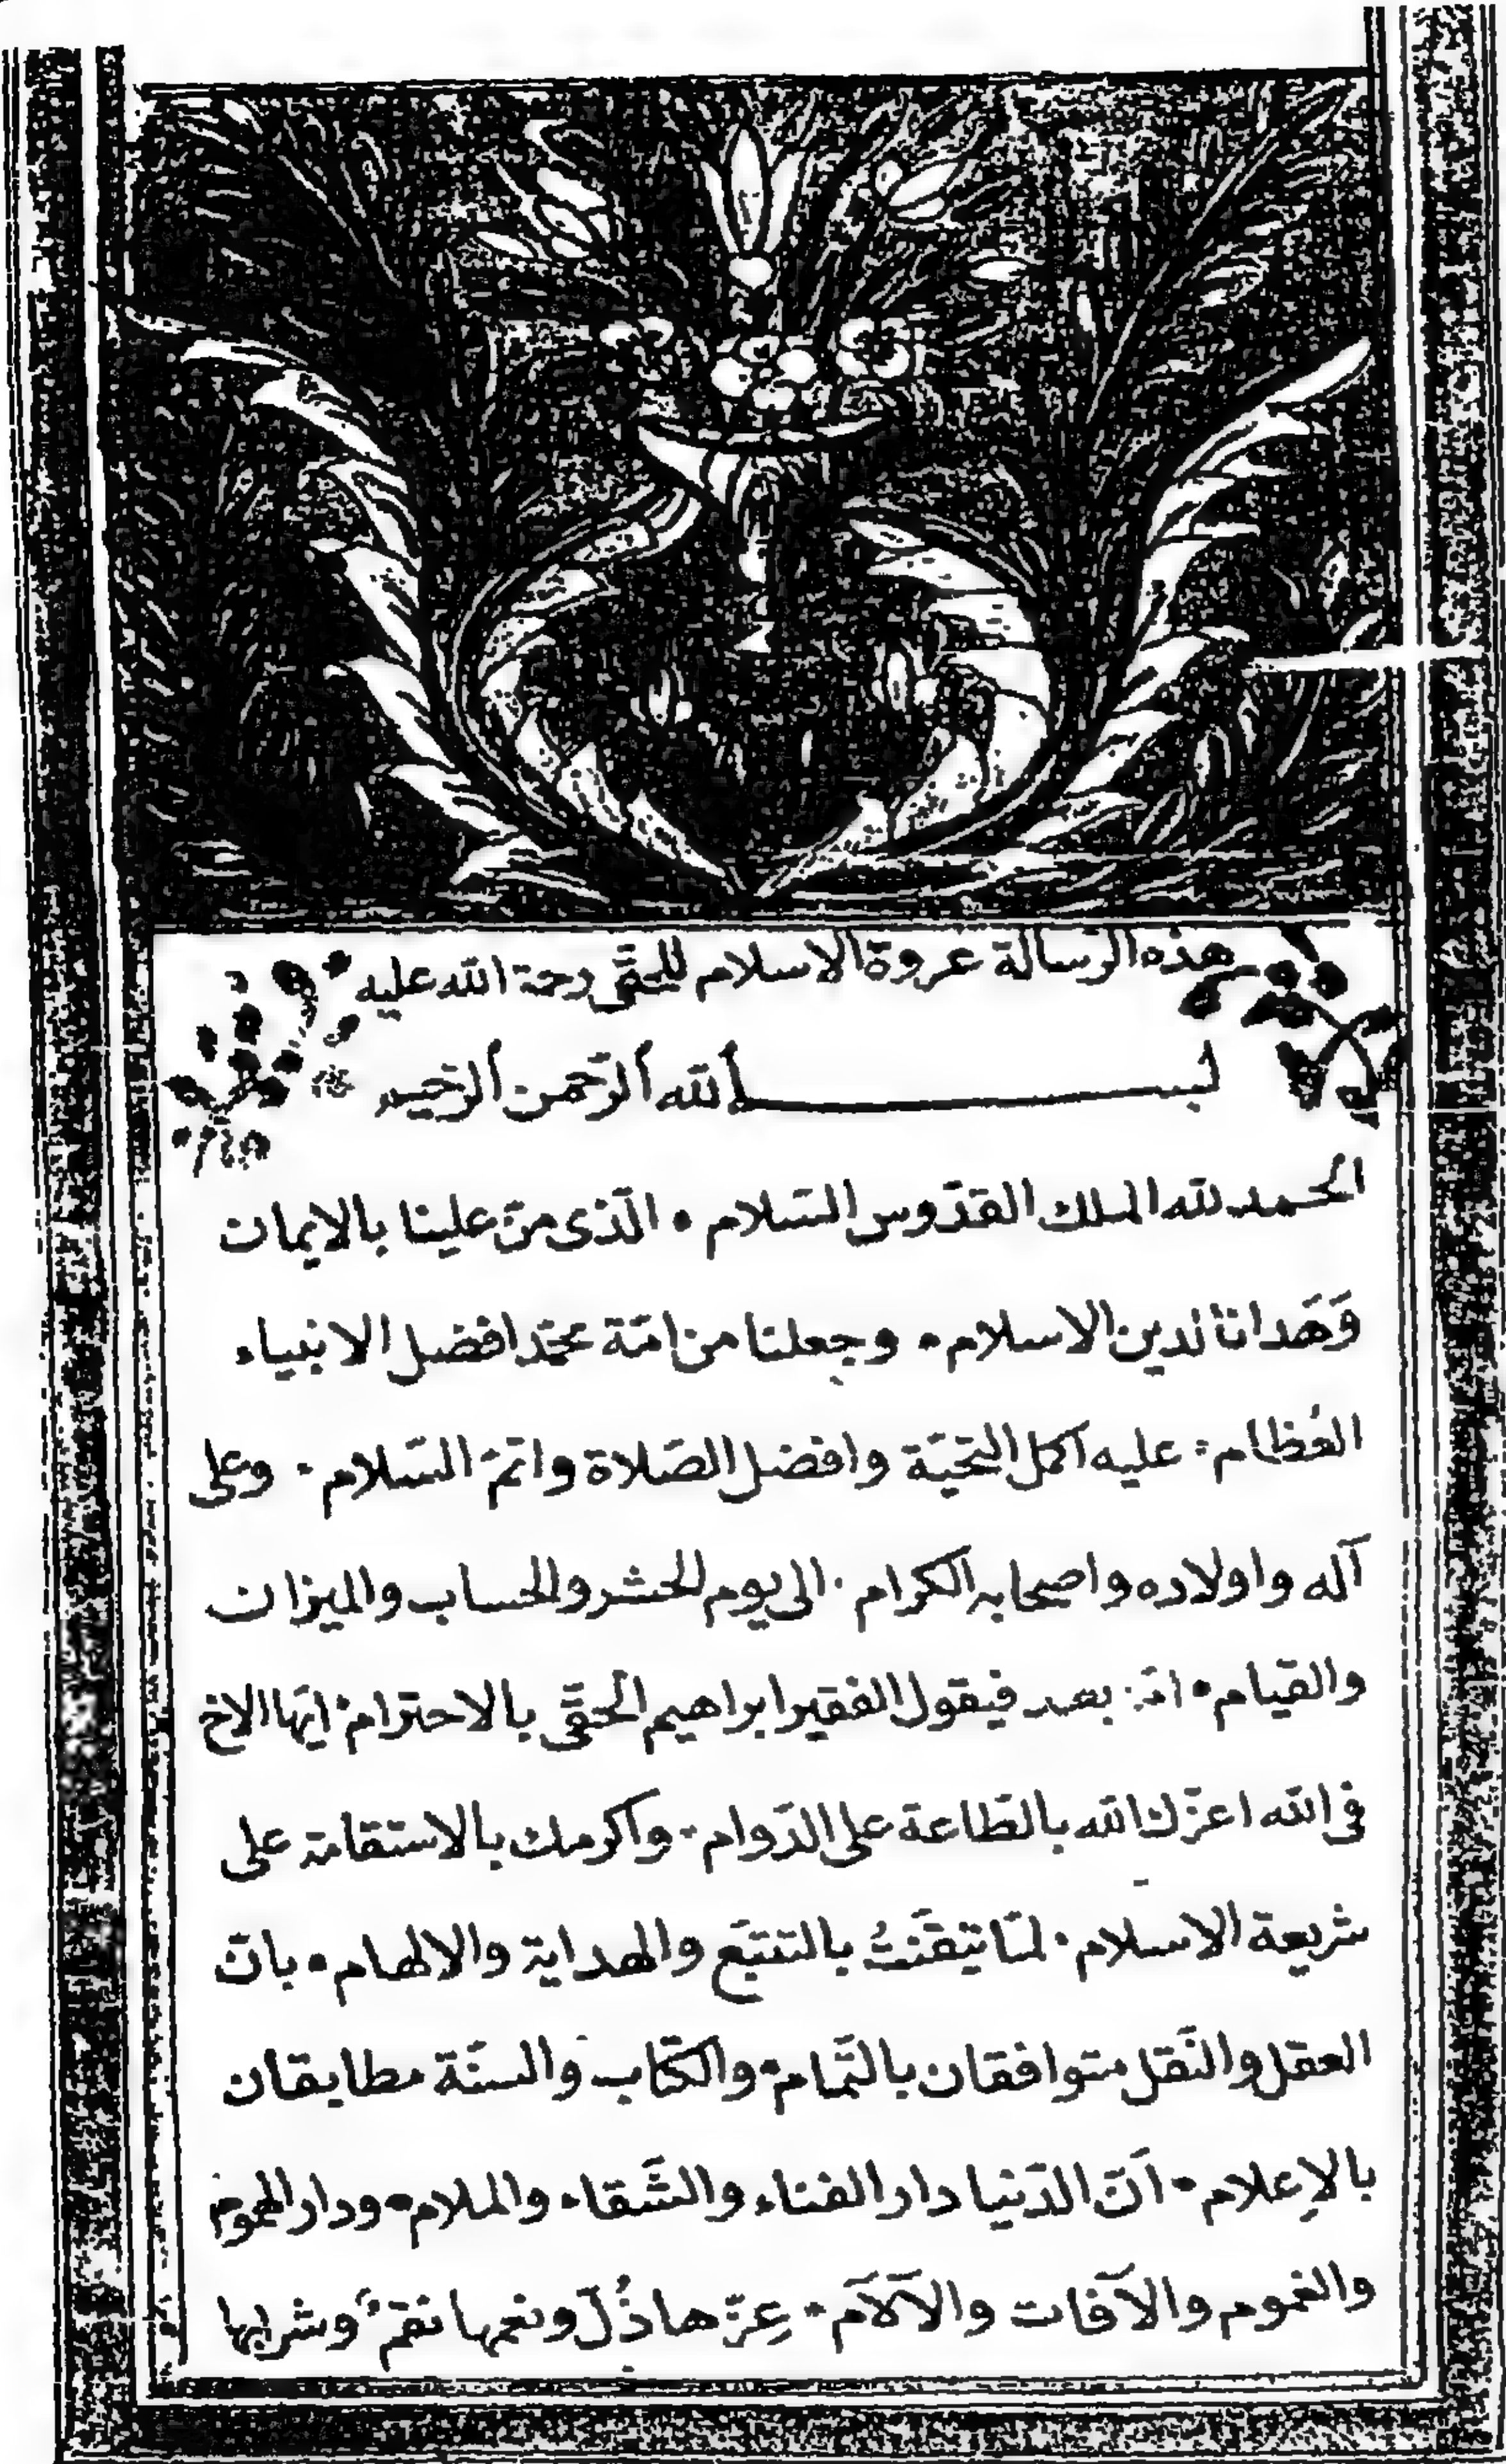 هذه الرسالة عروة الاسلام للحقّى رحمة الله عليه
بسم الله الرّحمن الرّحيم
الحمد لله الملك القدّوس السّلام • الّذى منّ علينا بالايمان
وَهَدانا لدين الاسلام • وجعلنا من امّة محمّد افضل الانبياء
العُظام • عليه اكمل التّحيّة وافضل الصّلاة واتمّ السّلام • وعلى
آله واولاده واصحابه الكرام • الى يوم الحشر والحساب والميزان
والقيام • امّا بعد فيقول الفقير ابراهيم الحقّى بالاحترام • ايّها الاخ
فى الله اعزّك الله بالطّاعة على الدّوام • واكرمك بالاستقامة على
شريعة الاسلام • لمّا تيقّنتُ بالتتبّع والهداية والالهام • بانّ
العقل والنّقل متوافقان بالتّمام • والكتاب والسنّة مطابقان
بالاِعلام • اَنّ الدّنيا دار الفناء والشّقاء والملام • ودار الهموم
والغموم والآفات والآلآم • عِزّها ذُلّ ونعمها نقمٌ وشرابها